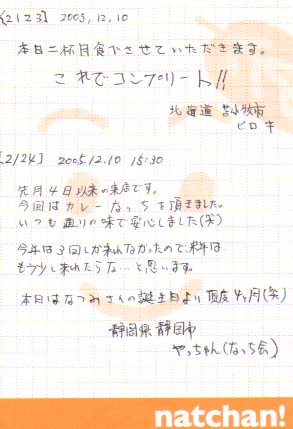 [2123] 2005.12.10
本日二杯目食べさせていただきます。
これでコンプリート!!
北海道 苫小牧市
ヒロキ
[2124] 2005.12.10 15:30
先月4日以来の来店です。
今回はカレーなっちを頂きました。
いつも通りの味で安心しました(笑)
今年は3回しか来れなかったので、来年は
もう少し来れたらな…と思います。
本日はなつみさんの誕生日より頂度4ヶ月(笑)
静岡県静岡市
やっちゃん(なっち会)
natchan!